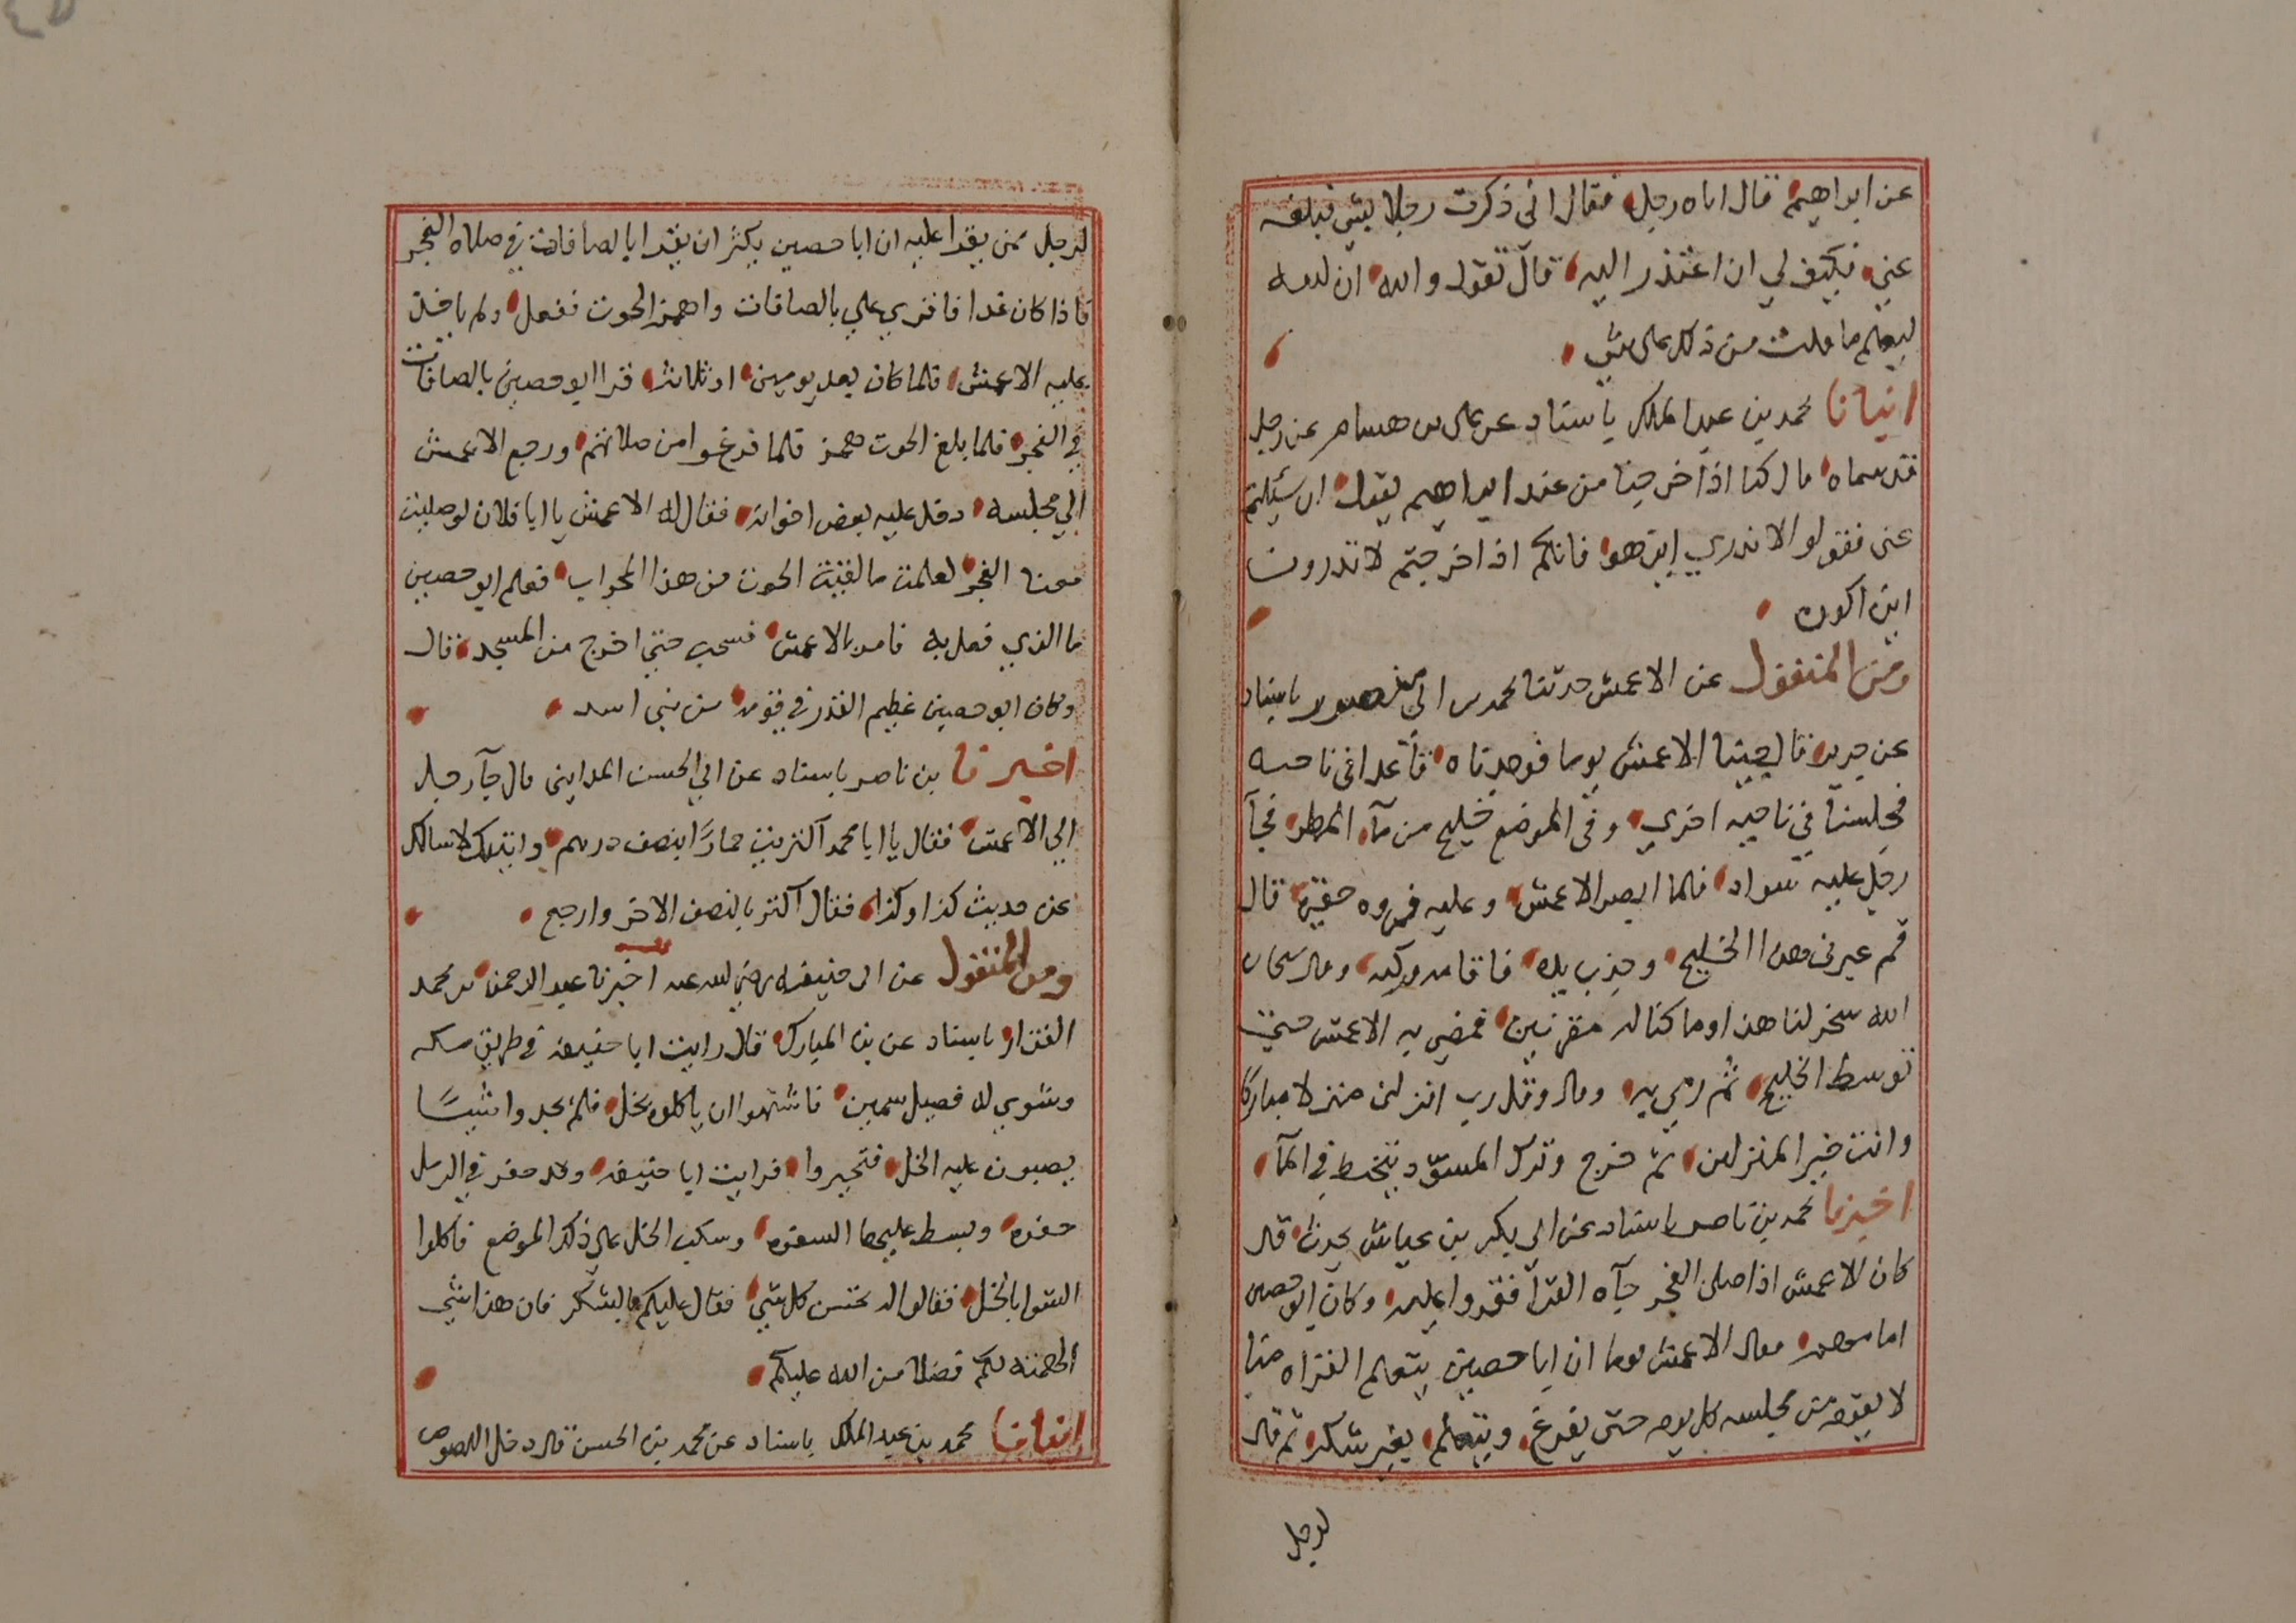 عن ابراهيم قال اتاه رجل فقال اني ذكرت رجلا بشي فبلغه
عني فكيف لي ان اعتذر اليه قال تقول والله ان الله
ليعلم ما قلت من ذلك من شي
انبانا محمد بن عبد الملك باسناد عن علي بن هشام عن رجل
قد سماه قال كنا اذا خرجنا من عند ابراهيم يقول ان سئيلتم
عني فقولو لا ندري اين هو فانكم اذا خرجتم لا تدرون
اين اكون
ومن المنقول عن الاعمش حدثنا محمد بن ابي منصور باسناد
عن جرير قال جينا الاعمش يوما فوجدناه قاعدا في ناحيه
فجلسنا في ناحيه اخري وفي الموضع خليج من مآ المطر فجآ
رجل عليه سواد فلما ابصر الاعمش وعليه فروه حقيره قال
قم عبرني هذا الخليج وجذب بيده فاقامه وركبه وقال سبحان
الله سخر لنا هذا وما كنا له مقرنين فمضي به الاعمش حتي
توسط الخليج ثم رمي به وقال وقل رب انزلني منزلا مباركا
وانت خير المنزلين ثم خرج وترك المسوّد يتخبط في المآ
اخبرنا محمد بن ناصر باسناد عن ابي بكر بن عياش يحدث قال
كان الاعمش اذا صلي الفجر جآه القرآ فقروا عليه وكان ابو حصين
امامهم فقال الاعمش يوما ان ابا حصين يتعلم القراه منا
لا يقوم من مجلسه كل يوم حتي يفرغ ويتعلم بغير شكر ثم قال
لرجل
لرجل ممن يقرا عليه ان ابا حصين يكثر ان يقرا بالصافات في صلاه الفجر
فاذا كان غدا فاقري علي بالصافات واهمز الحوت ففعل ولم ياخذ
عليه الاعمش فلما كان بعد يومين او ثلاث قرا ابو حصين بالصافات
في الفجر فلما بلغ الحوت همز فلما فرغوا من صلاتهم ورجع الاعمش
الي مجلسه دخل عليه بعض اخوانه فقال له الاعمش يا ابا فلان لو صليت
معنا الفجر لعلمت ما لقيت الحوت من هذا المحراب فعلم ابو حصين
ما الذي فعل به فامر بالاعمش فسحب حتي اخرج من المسجد قال
وكان ابو حصين عظيم القدر في قومه من بني اسد
اخبرنا بن ناصر باسناد عن ابي الحسن المدايني قال جآ رجل
الي الاعمش فقال يا ابا محمد آكتريت حمارًا بنصف درهم واتيتك لاسالك
عن حديث كذا وكذا فقال آكتر بالنصف الاخر وارجع
ومن المنقول عن ابي حنيفه رضي الله عنه اخبرنا عبد الرحمن بن محمد
القزاز باسناد عن بن المبارك قال رايت ابا حنيفه في طريق مكه
وشوي له فصيل سمين فاشتهوا ان ياكلوه بخل فلم يجدوا شيئًا
يصبون عليه الخل فتحيروا فرايت ابا حنيفه وقد حفر في الرمل
حفره وبسط عليها السفره وسكب الخل علي ذلك الموضع فاكلوا
الشوا بالخل فقالوا له تحسن كل شي فقال عليكم بالشكر فان هذا شي
الهمته لكم فضلا من الله عليكم
انبانا محمد بن عبد الملك باسناد عن محمد بن الحسن قال دخل اللصوص